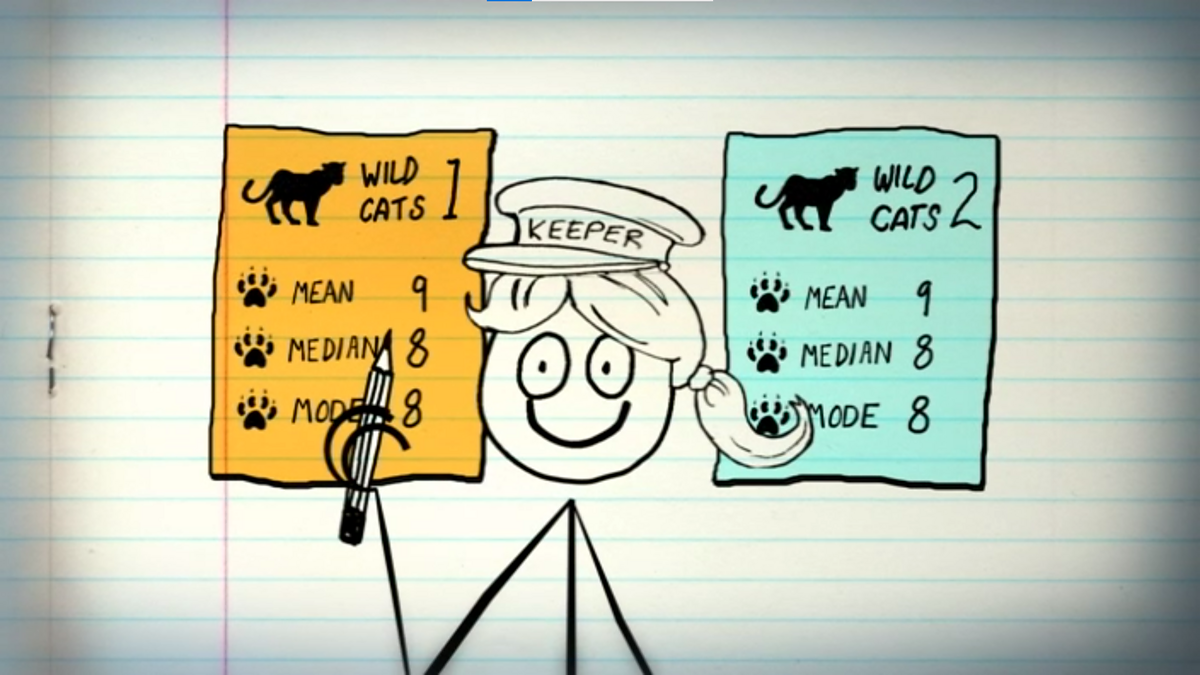 WILD
CATS 1
MEAN 9
MEDIAN 8
MODE 8
KEEPER
WILD
CATS 2
MEAN 9
MEDIAN 8
MODE 8